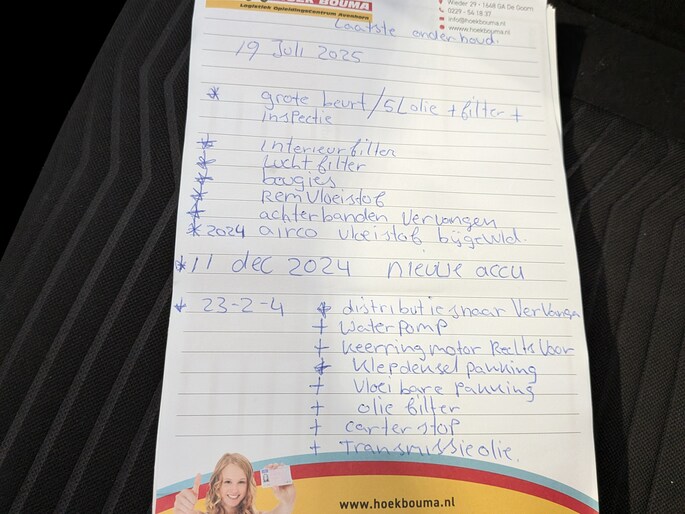 HOEK BOUMA
Logistiek Opleidingscentrum Avenhorn
Wieder 29 - 1648 GA De Goorn
0229 - 54 18 37
info@hoekbouma.nl
www.hoekbouma.nl
Laatste onderhoud.
19 Juli 2025
* grote beurt/5L olie + filter +
inspectie
* interieurfilter
* Luchtfilter
* bougies
* Remvloeistof
* achterbanden Vervangen
* 2024 airco vloeistof bijgevuld.
* 11 dec 2024 nieuwe accu
* 23-2-4 * distributiesnaar Vervangen
+ Waterpomp
+ keerring motor Rechts Voor
+ Klepdeksel pakking
+ Vloeibare pakking
+ olie filter
+ carterstop
+ Transmissieolie.
www.hoekbouma.nl